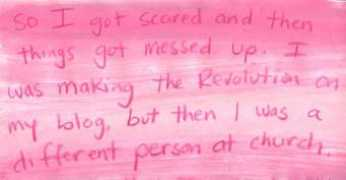 so I got scared and then
things got messed up. I
was making the Revolution on
my blog, but then I was a
different person at church.